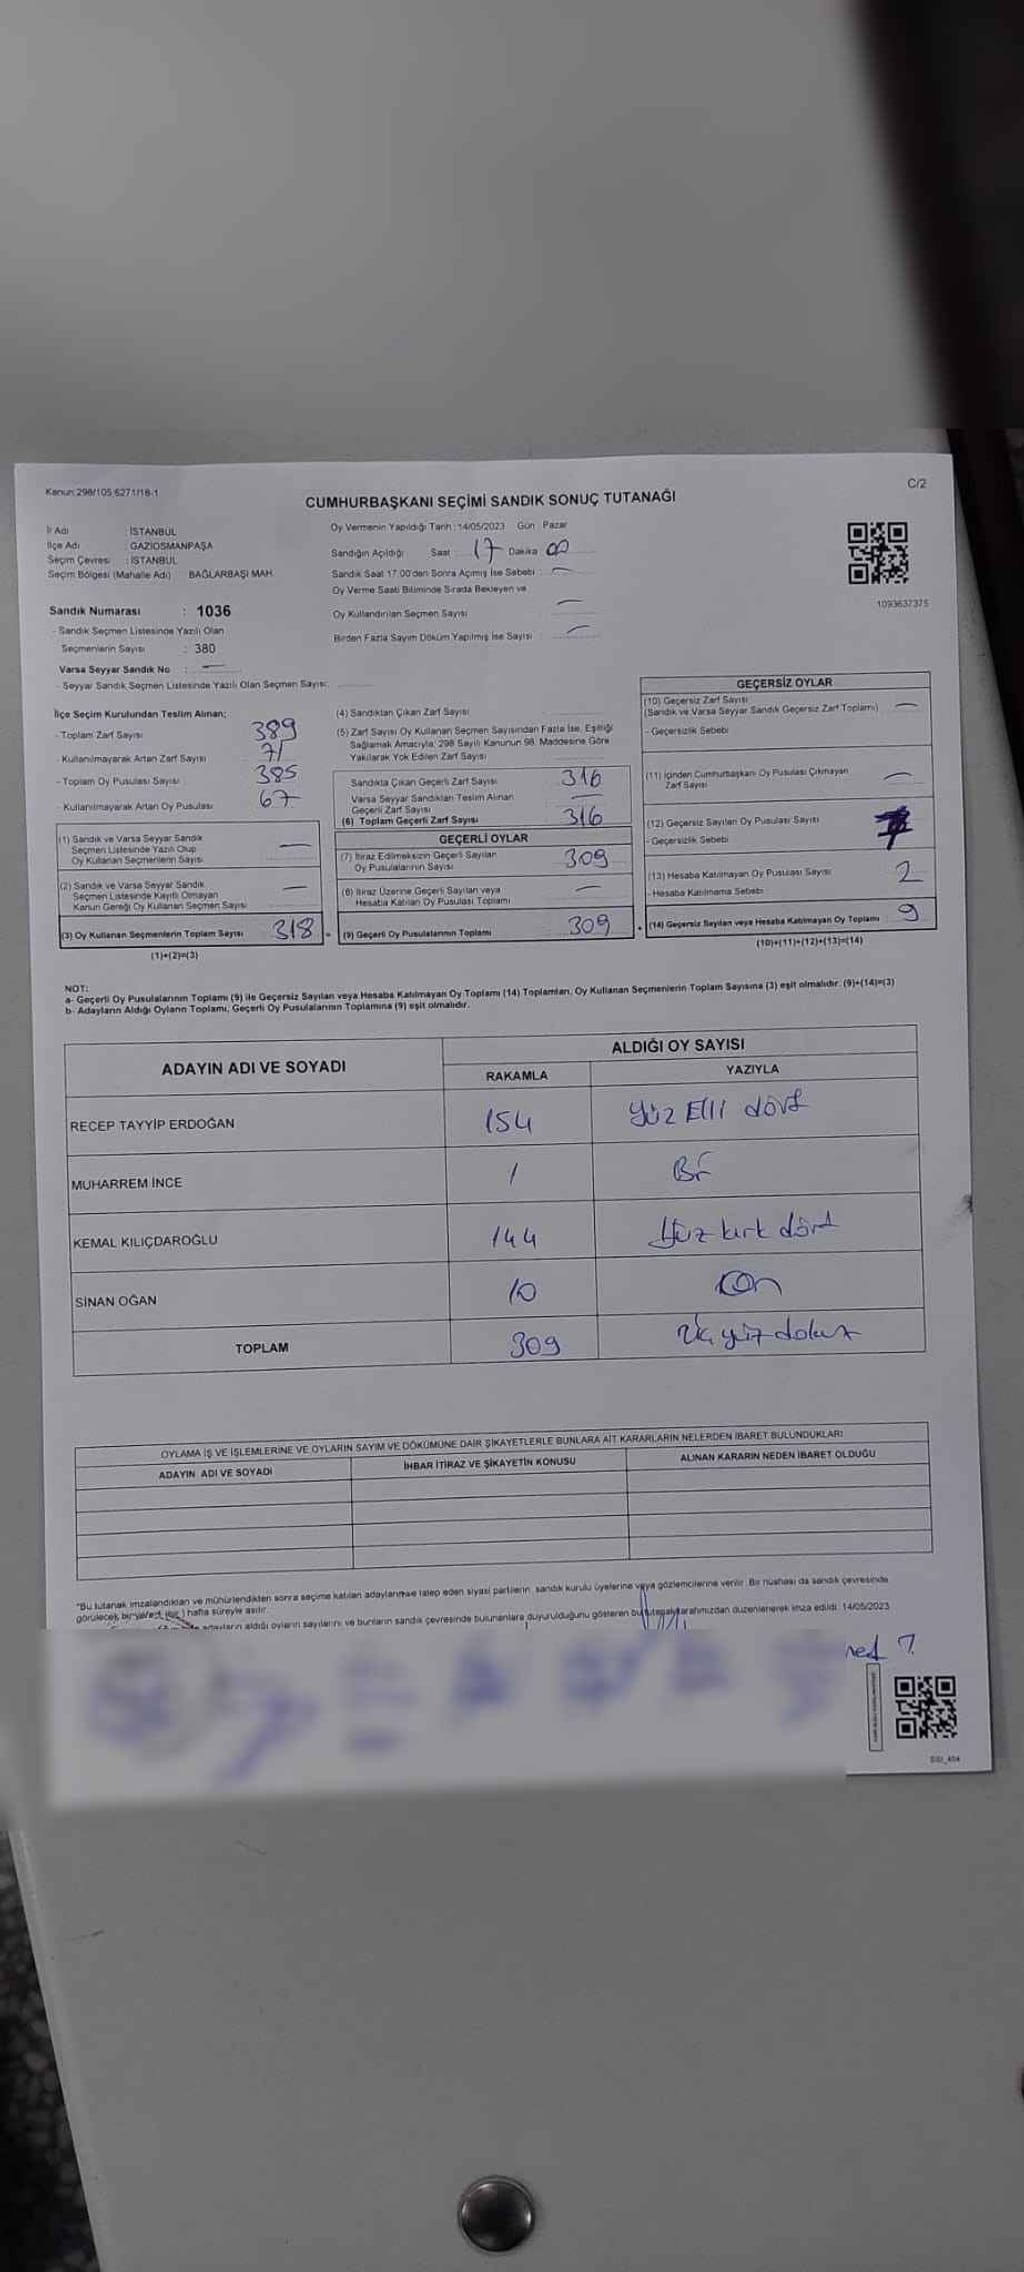 Kanun:298/105 6271/18-1
C/2
CUMHURBAŞKANI SEÇİMİ SANDIK SONUÇ TUTANAĞI
İl Adı : İSTANBUL
İlçe Adı : GAZİOSMANPAŞA
Seçim Çevresi : İSTANBUL
Seçim Bölgesi (Mahalle Adı) BAĞLARBAŞI MAH.
Oy Vermenin Yapıldığı Tarih :14/05/2023 Gün : Pazar
Sandığın Açıldığı Saat : 17 Dakika 00
Sandık Saat 17:00'den Sonra Açılmış İse Sebebi : —
Oy Verme Saati Bitiminde Sırada Bekleyen ve
Oy Kullandırılan Seçmen Sayısı —
Birden Fazla Sayım Döküm Yapılmış İse Sayısı : —
1093637375
Sandık Numarası : 1036
- Sandık Seçmen Listesinde Yazılı Olan
Seçmenlerin Sayısı : 380
Varsa Seyyar Sandık No : —
- Seyyar Sandık Seçmen Listesinde Yazılı Olan Seçmen Sayısı:
İlçe Seçim Kurulundan Teslim Alınan;
- Toplam Zarf Sayısı 389
- Kullanılmayarak Artan Zarf Sayısı 71
- Toplam Oy Pusulası Sayısı 385
- Kullanılmayarak Artan Oy Pusulası 67
(1) Sandık ve Varsa Seyyar Sandık
Seçmen Listesinde Yazılı Olup
Oy Kullanan Seçmenlerin Sayısı —
(2) Sandık ve Varsa Seyyar Sandık
Seçmen Listesinde Kayıtlı Olmayan
Kanun Gereği Oy Kullanan Seçmen Sayısı —
(3) Oy Kullanan Seçmenlerin Toplam Sayısı 318
(1)+(2)=(3)
(4) Sandıktan Çıkan Zarf Sayısı
(5) Zarf Sayısı Oy Kullanan Seçmen Sayısından Fazla İse, Eşitliği
Sağlamak Amacıyla, 298 Sayılı Kanunun 98. Maddesine Göre
Yakılarak Yok Edilen Zarf Sayısı
Sandıkta Çıkan Geçerli Zarf Sayısı 316
Varsa Seyyar Sandıktan Teslim Alınan
Geçerli Zarf Sayısı —
(6) Toplam Geçerli Zarf Sayısı 316
GEÇERLİ OYLAR
(7) İtiraz Edilmeksizin Geçerli Sayılan
Oy Pusulalarının Sayısı 309
(8) İtiraz Üzerine Geçerli Sayılan veya
Hesaba Katılan Oy Pusulası Toplamı —
(9) Geçerli Oy Pusulalarının Toplamı 309
GEÇERSİZ OYLAR
(10) Geçersiz Zarf Sayısı
(Sandık ve Varsa Seyyar Sandık Geçersiz Zarf Toplamı) —
- Geçersizlik Sebebi
(11) İçinden Cumhurbaşkanı Oy Pusulası Çıkmayan
Zarf Sayısı —
(12) Geçersiz Sayılan Oy Pusulası Sayısı 7
- Geçersizlik Sebebi
(13) Hesaba Katılmayan Oy Pusulası Sayısı 2
- Hesaba Katılmama Sebebi
(14) Geçersiz Sayılan veya Hesaba Katılmayan Oy Toplamı 9
(10)+(11)+(12)+(13)=(14)
NOT:
a- Geçerli Oy Pusulalarının Toplamı (9) ile Geçersiz Sayılan veya Hesaba Katılmayan Oy Toplamı (14) Toplamları, Oy Kullanan Seçmenlerin Toplam Sayısına (3) eşit olmalıdır. (9)+(14)=(3)
b- Adayların Aldığı Oyların Toplamı, Geçerli Oy Pusulalarının Toplamına (9) eşit olmalıdır.
ADAYIN ADI VE SOYADI
ALDIĞI OY SAYISI
RAKAMLA YAZIYLA
RECEP TAYYİP ERDOĞAN 154 yüz Elli dört
MUHARREM İNCE 1 Bir
KEMAL KILIÇDAROĞLU 144 Yüz kırk dört
SİNAN OĞAN 10 on
TOPLAM 309 üç yüz dokuz
OYLAMA İŞ VE İŞLEMLERİNE VE OYLARIN SAYIM VE DÖKÜMÜNE DAİR ŞİKAYETLERLE BUNLARA AİT KARARLARIN NELERDEN İBARET BULUNDUKLARI
ADAYIN ADI VE SOYADI İHBAR İTİRAZ VE ŞİKAYETİN KONUSU ALINAN KARARIN NEDEN İBARET OLDUĞU
*Bu tutanak imzalandıktan ve mühürlendikten sonra seçime katılan adaylarınıse talep eden siyasi partilerin, sandık kurulu üyelerine veya gözlemcilerine verilir. Bir nüshası da sandık çevresinde
görülecek bir yere (bir) hafta süreyle asılır.
adayların aldığı oyların sayılarını ve bunların sandık çevresinde bulunanlara duyurulduğunu gösteren bu tutanak tarafımızdan düzenlenerek imza edildi. 14/05/2023